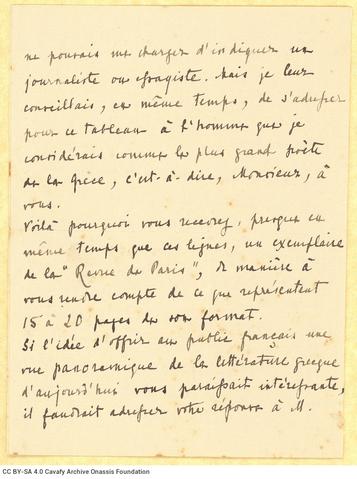 ne pouvais me charger d'indiquer un
journaliste ou essayiste. Mais je leur
conseillais, en même temps, de s'adresser
pour ce tableau à l'homme que je
considérais comme le plus grand poète
de la Grèce, c'est-à-dire, Monsieur, à
vous.
Voilà pourquoi vous recevrez, presque en
même temps que ces lignes, un exemplaire
de la "Revue de Paris", de manière à
vous rendre compte de ce que représentent
15 à 20 pages de son format.
Si l'idée d'offrir au public français une
vue panoramique de la littérature grecque
d'aujourd'hui vous paraissait intéressante,
il faudrait adresser votre réponse à M.
CC BY-SA 4.0 Cavafy Archive Onassis Foundation